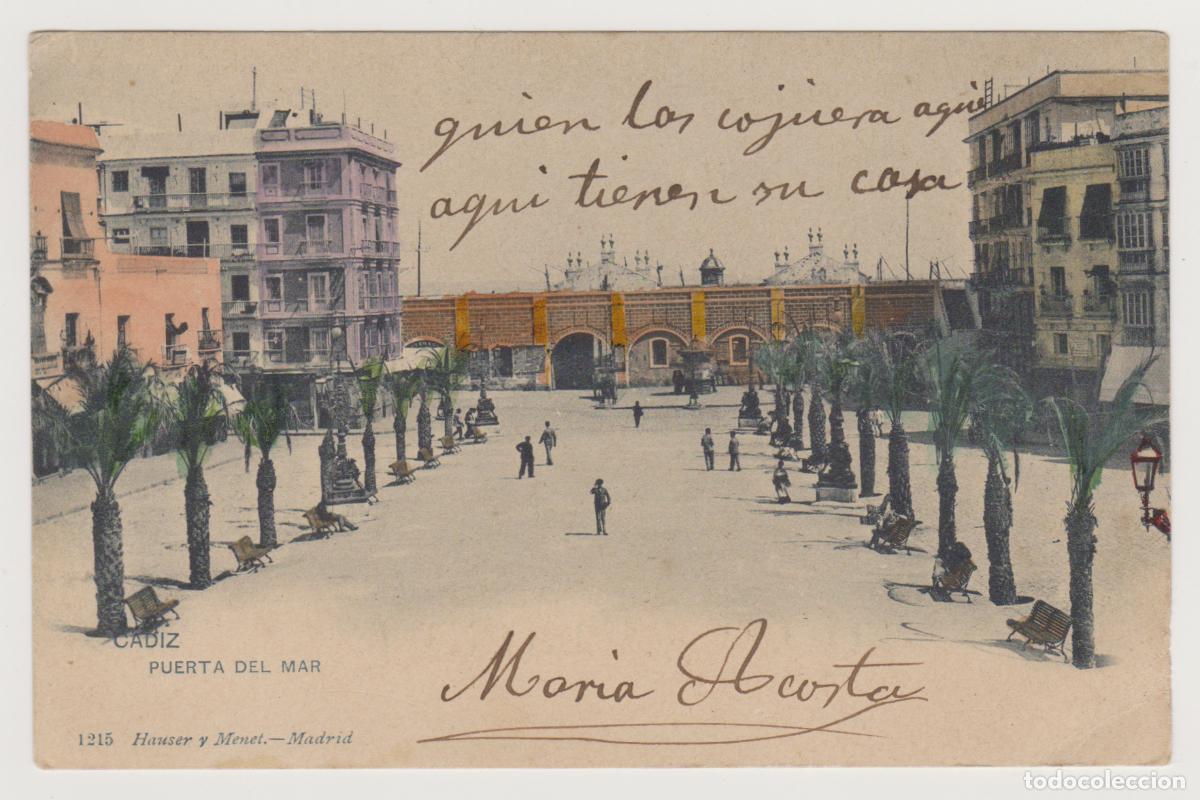 quien las cojiera aqui
aqui tienen su casa
CÁDIZ
PUERTA DEL MAR
Maria Acosta
1215 Hauser y Menet.—Madrid
todocoleccion